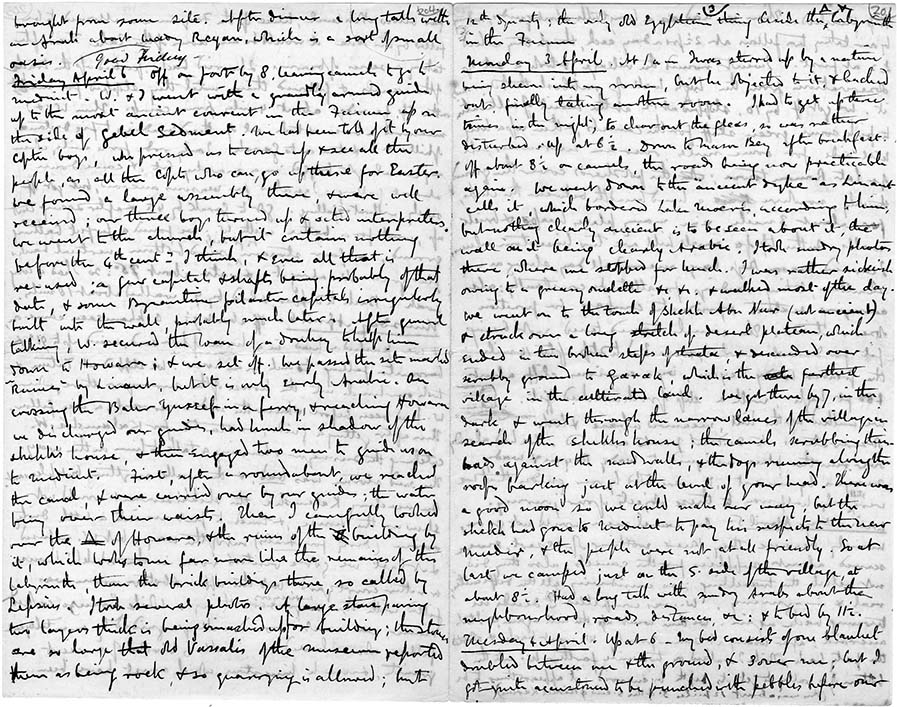 brought from some site. After dinner a long talk with
an Arab about Wady Reyan, which is a sort of small
oasis.
Good Friday
Friday April 6 Off on foot by 8, leaving camels to go to
Medinet. W. & I went with a grandly armed guide
up to the most ancient convent in the Faium up on
the side of Gebel Sedment. We had been told of it by our
Copt boys, who pressed us to come up & see all the
people, as all the Copts who can, go up there for Easter.
We found a large assembly there, & were well
received; our three boys turned up & acted interpreters,
we went to the church, but it contains nothing
before the 4th cent? I think, & even all that is
re-used: a few capitals & shafts being probably of that
date, & some Byzantine pilaster capitals irregularly
built into the wall, probably much later. After general
talking, W. secured the loan of a donkey to help him
down to Howara; & we set off. We passed the site marked
"Ruines" by Linant, but it is only early Arabic. On
crossing the Bahr Yusseef in a ferry, & reaching Howara
we discharged our guides, had lunch in shadow of the
shekh's house & then engaged two men to guide us on
to Medinet. First, after a roundabout, we reached
the canal, & were carried over by our guides; the water
being over their waists. Then I carefully looked
over the Δ of Howara, & the ruins of the building by
it, which looks to me far more like the remains of the
labyrinth, than the brick buildings there, so called by
Lepsius. I took several photos. A large stone paving
two layers thick is being smashed up for building; the stones
are so large that old Vassalis of the museum reported
them as being rock, & so quarrying is allowed; but
13
12th Dynasty; the only old Egyptian thing beside the labyrinth
in the Faium
Monday 3 April. At 1 a.m. I was stirred up by a native
being shewn into my room, but he objected to it & backed
out, finally taking another room. I had to get up three
times in the night, to clear out the fleas, so was rather
disturbed. Up at 6½. Down to Bey after breakfast.
Off about 8½ on camels, the roads being now practicable
again. We went down to the "ancient dyke" as Linant
calls it, which bordered Lake Moeris, according to him;
but nothing clearly ancient is to be seen about it, the
wall on it being clearly Arabic. I took sundry photos
there, where we stopped for lunch. I was rather sickish
owing to a greasy omelette &c. &c. & walked most of the day.
We went on to the tomb of Shekh Abu Nur (not ancient)
& struck over a long stretch of desert plateau, which
ended in two broken steps of strata & descended over
scrubby ground to Garak, which is the farthest
village in the cultivated land. We got there by 7, in the
dark & went through the narrow lanes of the village in
search of the shekh's house; the camels scrubbing their
loads against the mud walls, & the dogs running along the
roofs barking just at the level of your head. There was
a good moon so we could make our way, but the
shekh had gone to Medinet to pay his respects to the new
Mudir, & the people were not at all friendly. So at
last we camped just on the S. side of the village, at
about 8½. Had a long talk with sundry Arabs about the
neighbourhood, roads, distances, &c: & to bed by 11½.
April. Up at 6 - My bed consists of one blanket
doubled between me & the ground, & 3 over me; but I
got quite accustomed to be punched with pebbles before our